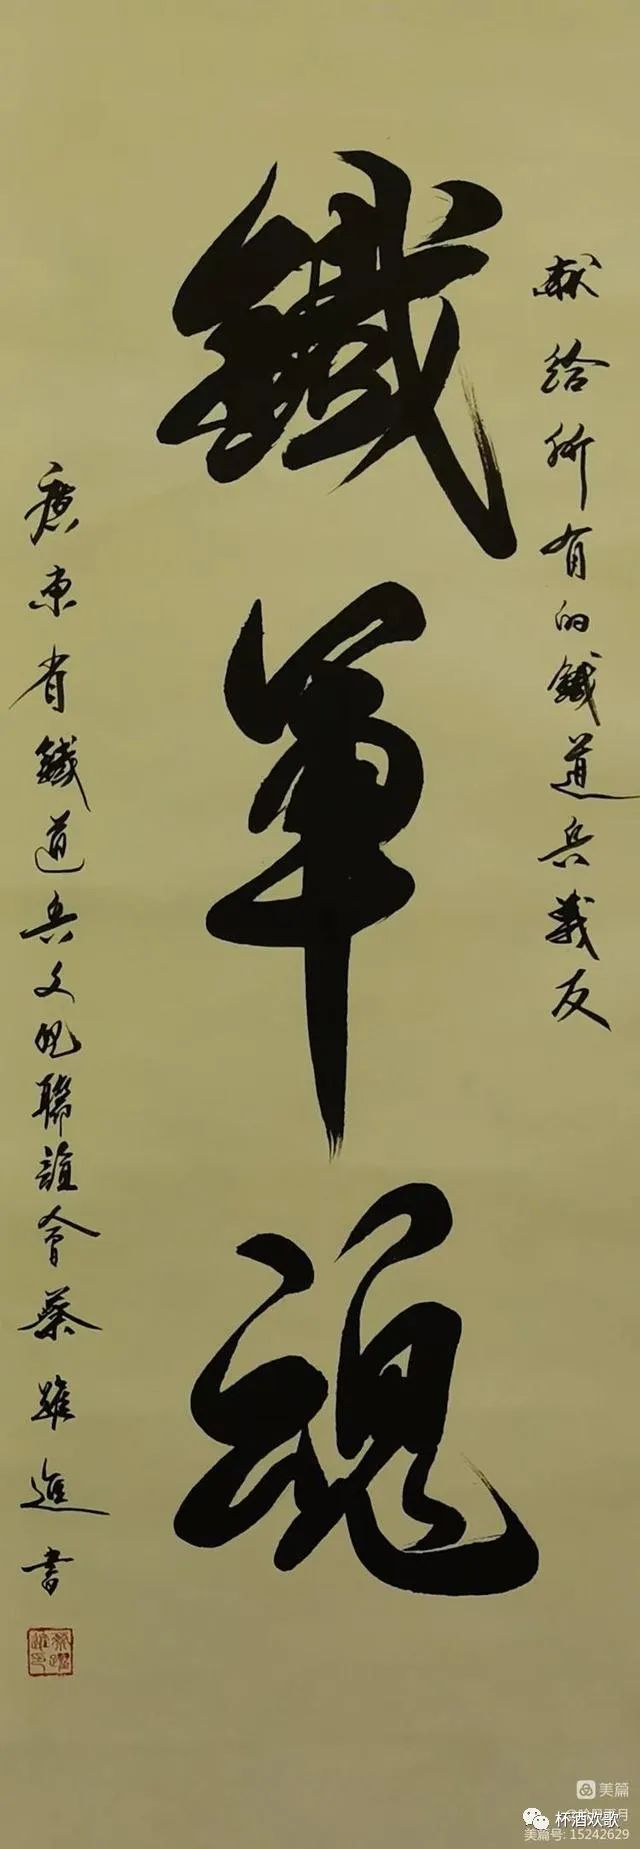 献给所有的鐵道兵戰友
鐵軍魂
廣東省鐵道兵文化聯誼會蔡躍進書
美篇
杯酒欢歌
美篇号: 15242629